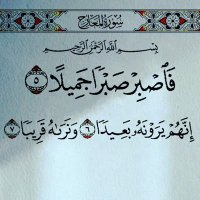 سورة المعارج
بسم الله الرحمن الرحيم
فَٱصۡبِرۡ صَبۡرٗا جَمِيلًا ٥
إِنَّهُمۡ يَرَوۡنَهُۥ بَعِيدٗا ٦ وَنَرَىٰهُ قَرِيبٗا ٧